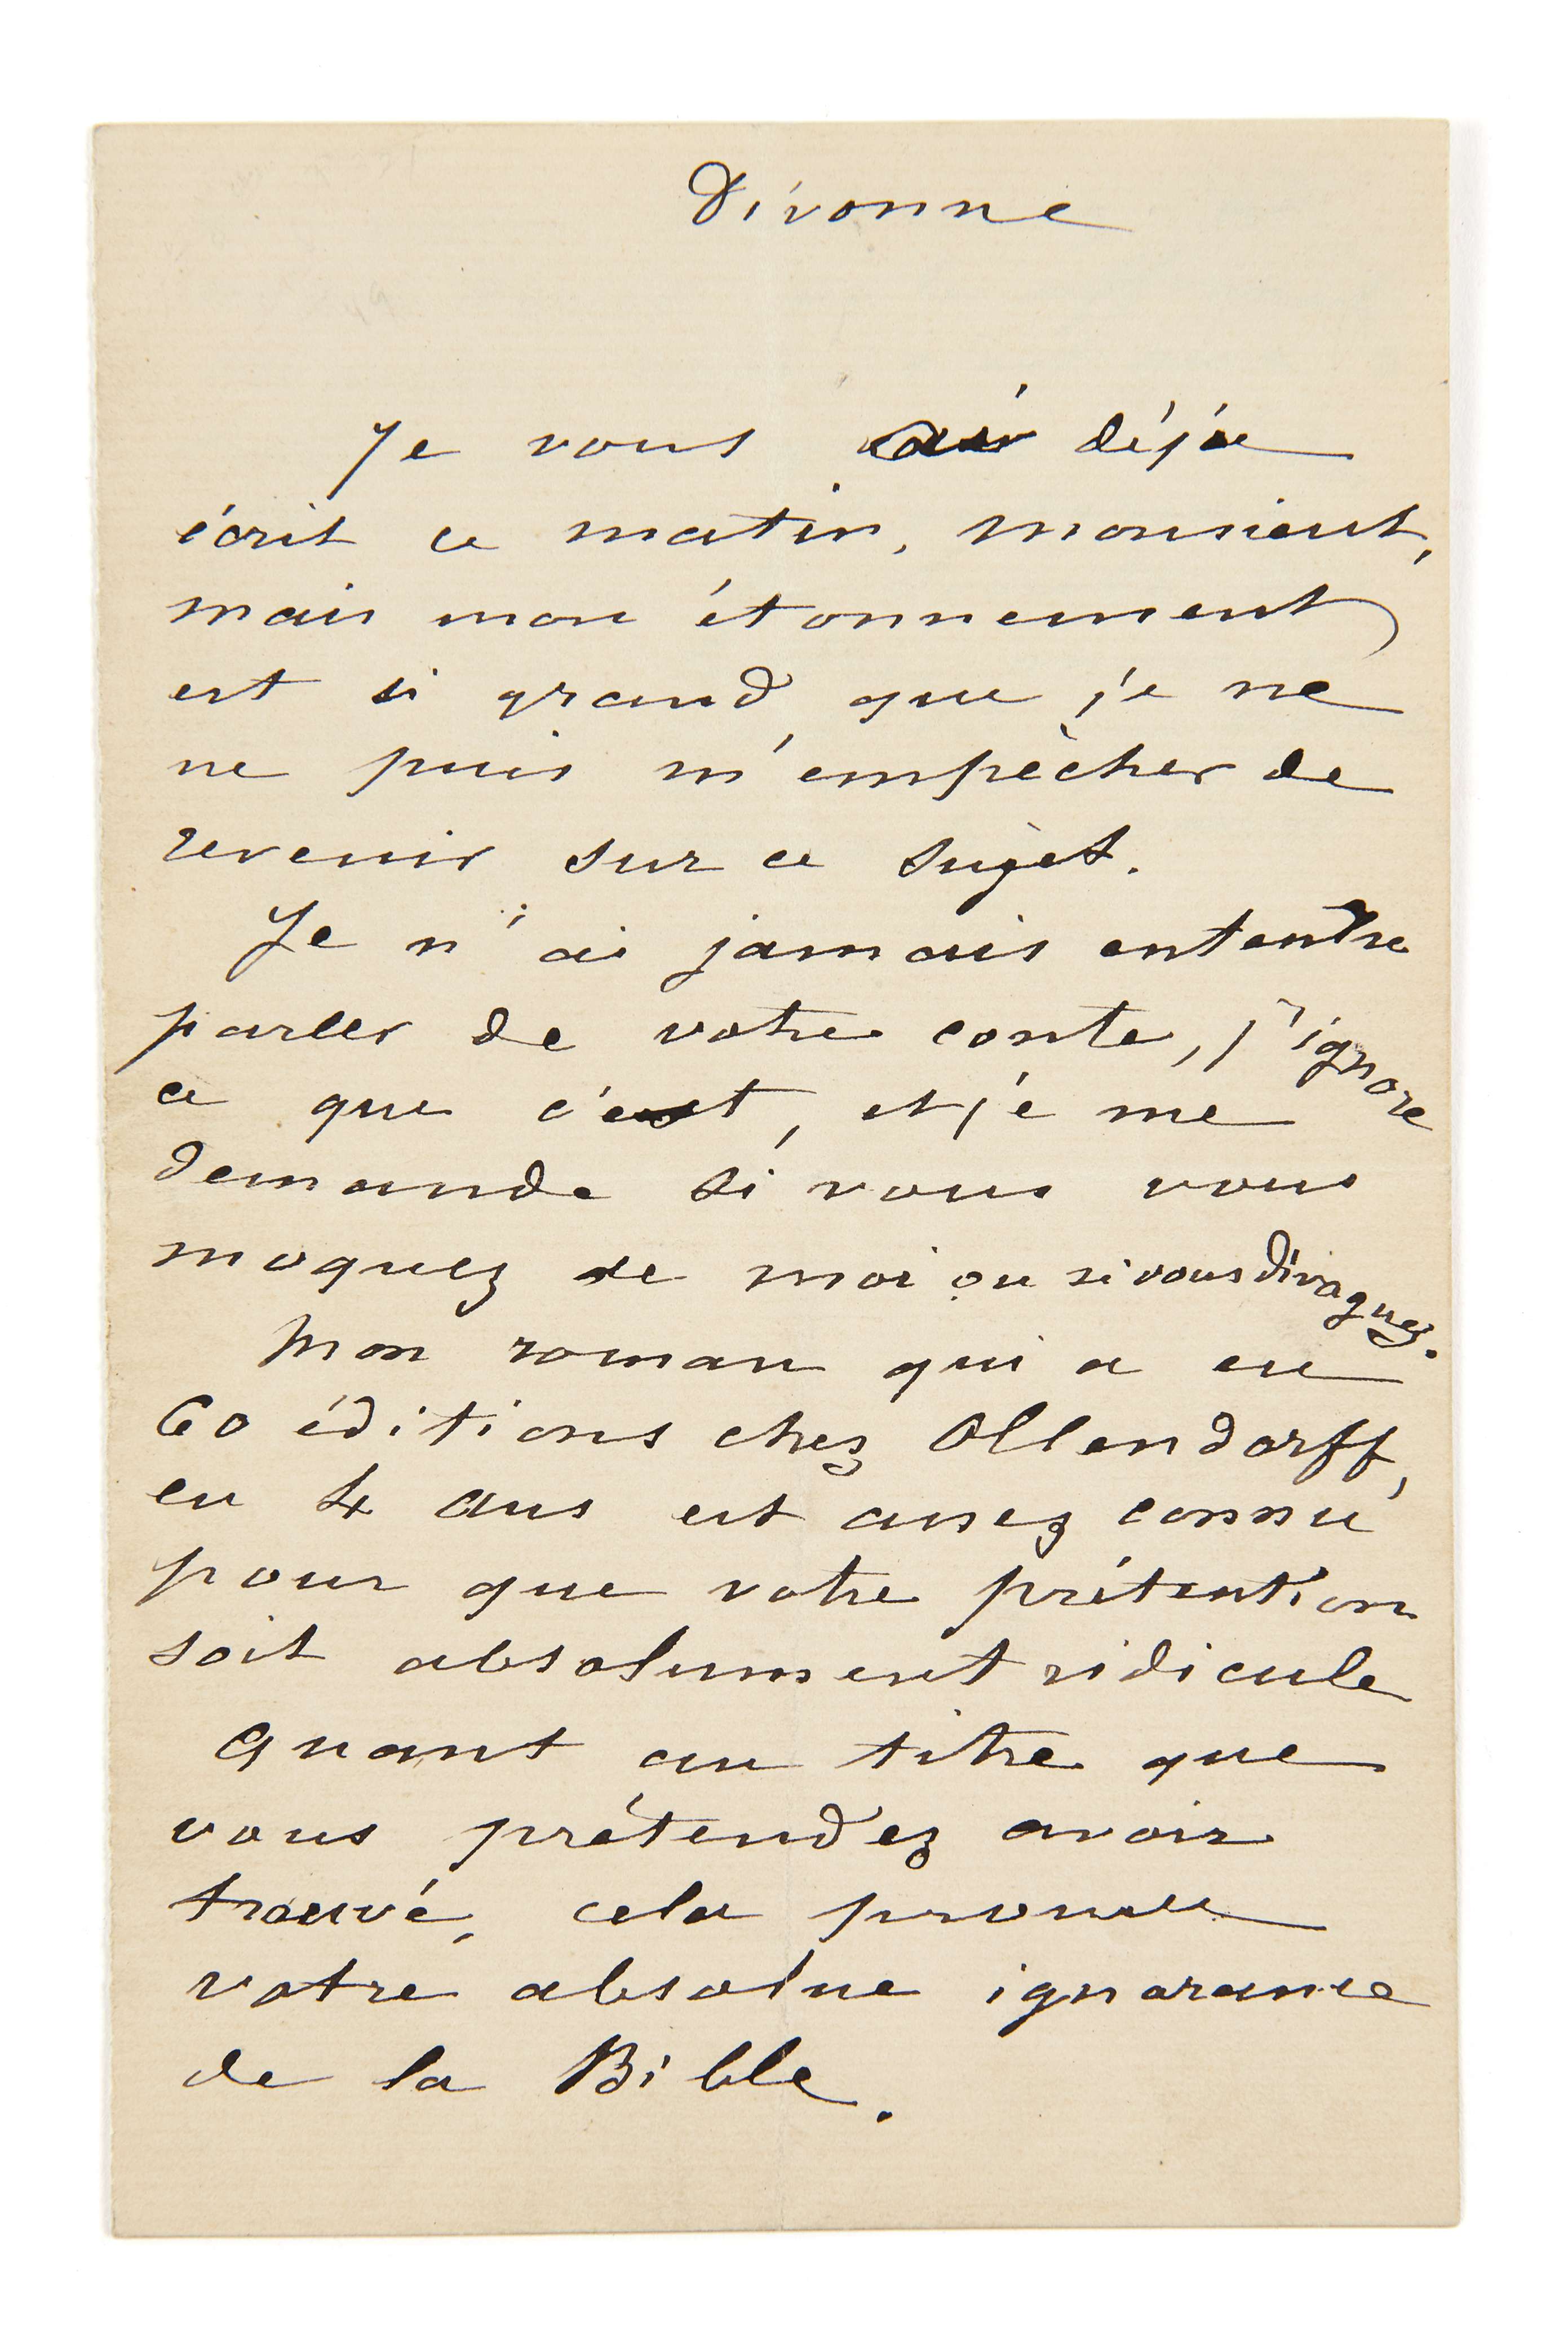 Divonne
Je vous ai déjà
écrit ce matin, monsieur,
mais mon étonnement
est si grand que je ne
ne puis m'empêcher de
revenir sur ce sujet.
Je n'ai jamais entendre
parler de votre conte, j'ignore
ce que c'est, et je me
demande si vous vous
moquez de moi ou si vous divaguez.
Mon roman qui a eu
60 éditions chez Ollendorff,
en 4 ans est assez connu
pour que votre prétention
soit absolument ridicule
Quant au titre que
vous prétendez avoir
trouvé, cela prouve
votre absolue ignorance
de la Bible.